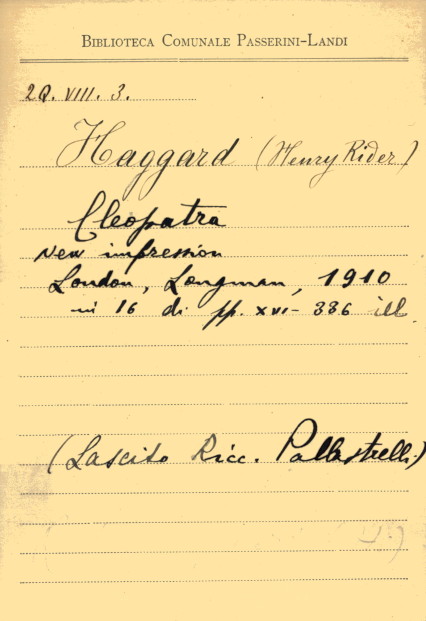 BIBLIOTECA COMUNALE PASSERINI-LANDI
2Q. VIII. 3.
Haggard (Henry Rider)
Cleopatra
New impression
London, Longman, 1910
in 16 di pp. XVI-336 ill.
(Lascito Ricc. Pallastrelli)